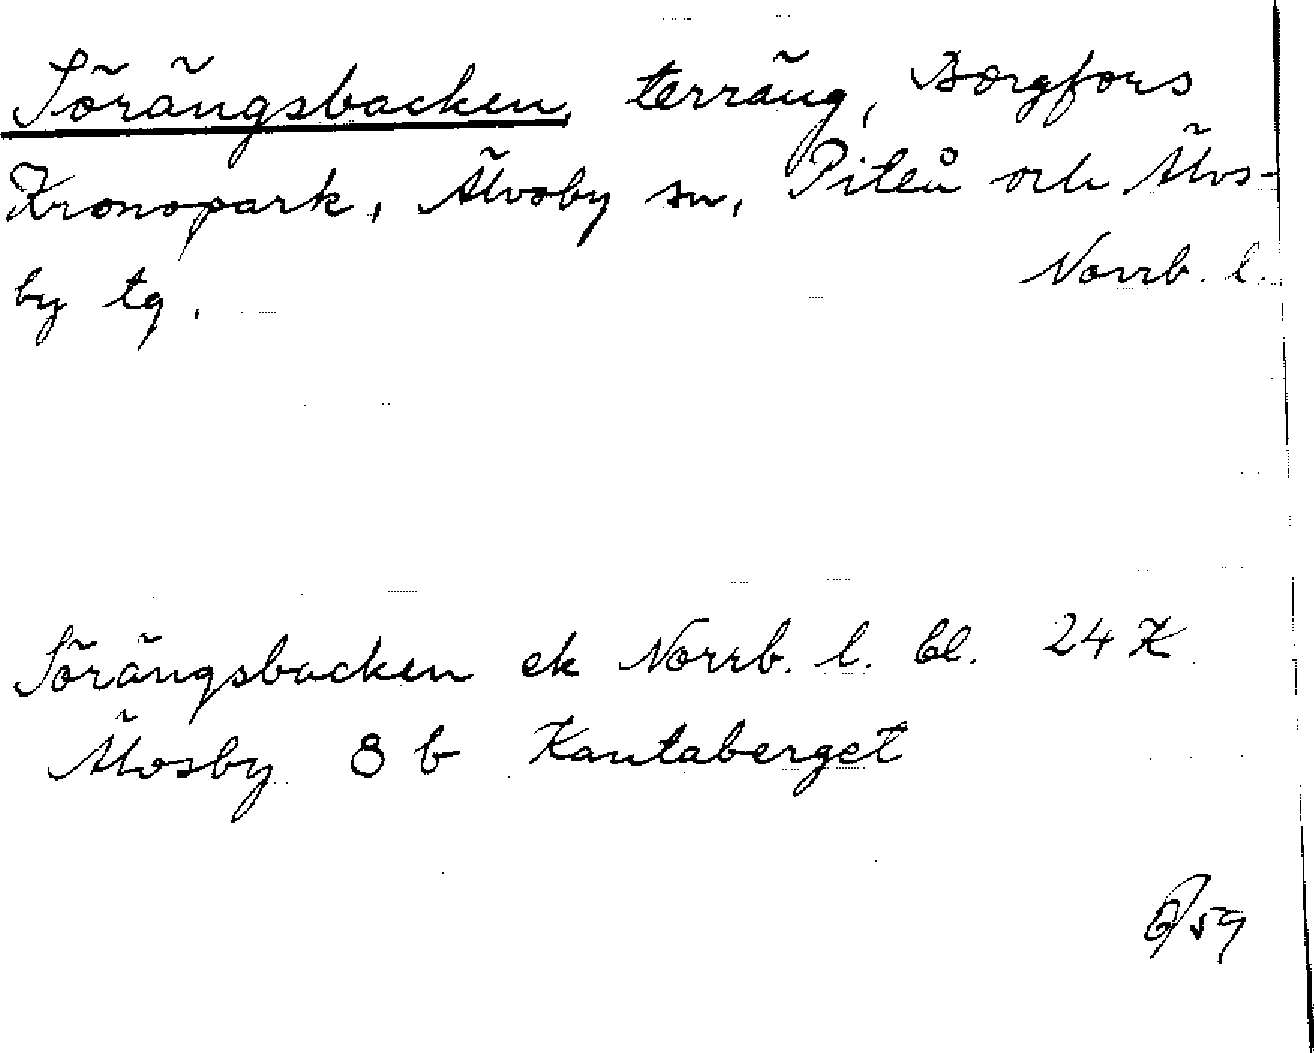 Sörängsbacken, terräng, Borgfors
Kronopark, Älvsby sn, Piteå och Älvs-
by tg.
Norrb. l.
Sörängsbacken ek Norrb. l. bl. 24 K
Älvsby 8 b Kantaberget
59